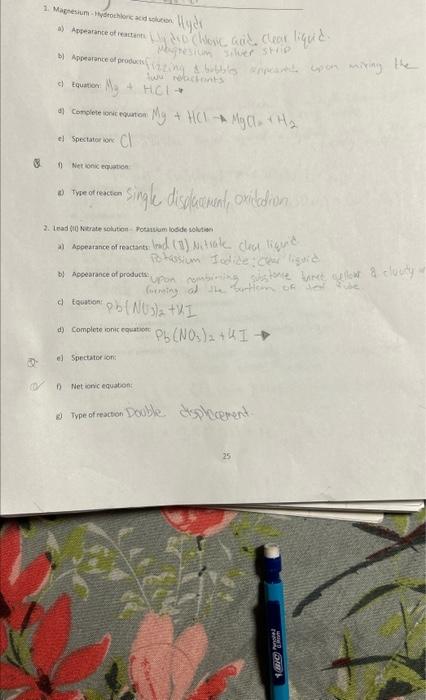 1. Magnesium - Hydrochloric acid solution Hydr
a) Appearance of reactants Hydro Chloric acid clear liquid.
Magnesium silver strip
b) Appearance of products fizzing & bubbles appeared upon mixing the
two reactants
c) Equation: Mg + HCl →
d) Complete ionic equation: Mg + HCl → MgCl₂ + H₂
e) Spectator ion: Cl
f) Net ionic equation:
g) Type of reaction single displacement, oxidation
2. Lead (II) Nitrate solution - Potassium Iodide solution
a) Appearance of reactants: lead (II) Nitrate clear liquid
Potassium Iodide: Clear liquid
b) Appearance of products: upon combining substance yellow & cloudy
forming at the bottom of test tube.
c) Equation: Pb(NO₃)₂ + KI
d) Complete ionic equation: Pb(NO₃)₂ + KI →
e) Spectator ion:
f) Net ionic equation:
g) Type of reaction Double displacement.
25
BIC